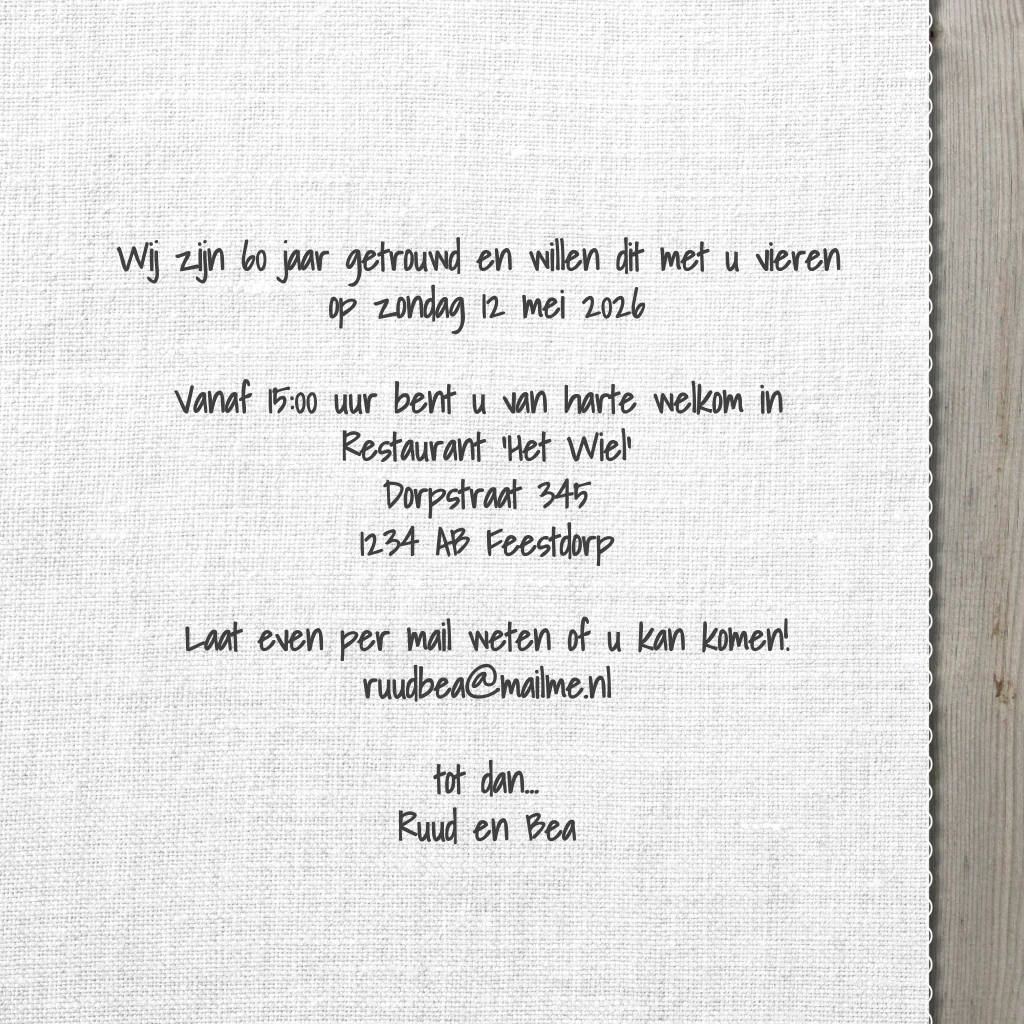 Wij zijn 60 jaar getrouwd en willen dit met u vieren
op zondag 12 mei 2026
Vanaf 15:00 uur bent u van harte welkom in
Restaurant 'Het Wiel'
Dorpstraat 345
1234 AB Feestdorp
Laat even per mail weten of u kan komen!
ruudbea@mailme.nl
tot dan...
Ruud en Bea